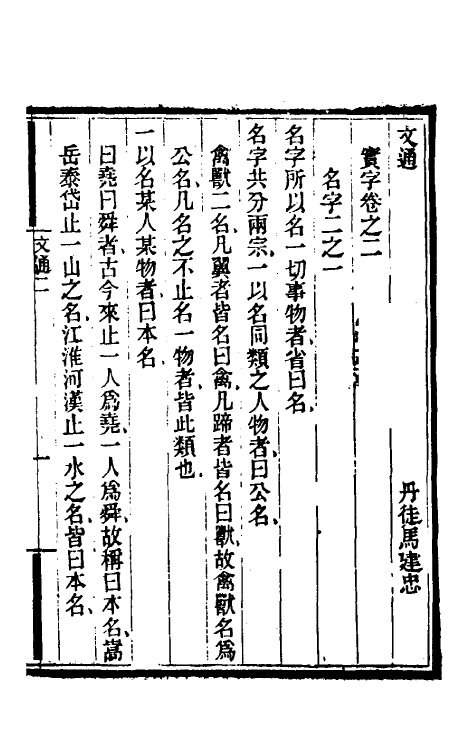 文通 丹徒馬建忠
實字卷之二
名字二之一
名字所以名一切事物者、省曰名、
名字共分兩宗、一以名同類之人物者、曰公名、
禽獸二名、凡翼者皆名曰禽、凡蹄者皆名曰獸、故禽獸名爲
公名、凡名之不止名一物者、皆此類也、
一以名某人某物者、曰本名、
曰堯曰舜者、古今來止一人爲堯、一人爲舜、故稱曰本名、嵩
岳泰岱止一山之名、江淮河漢止一水之名、皆曰本名、
文通二